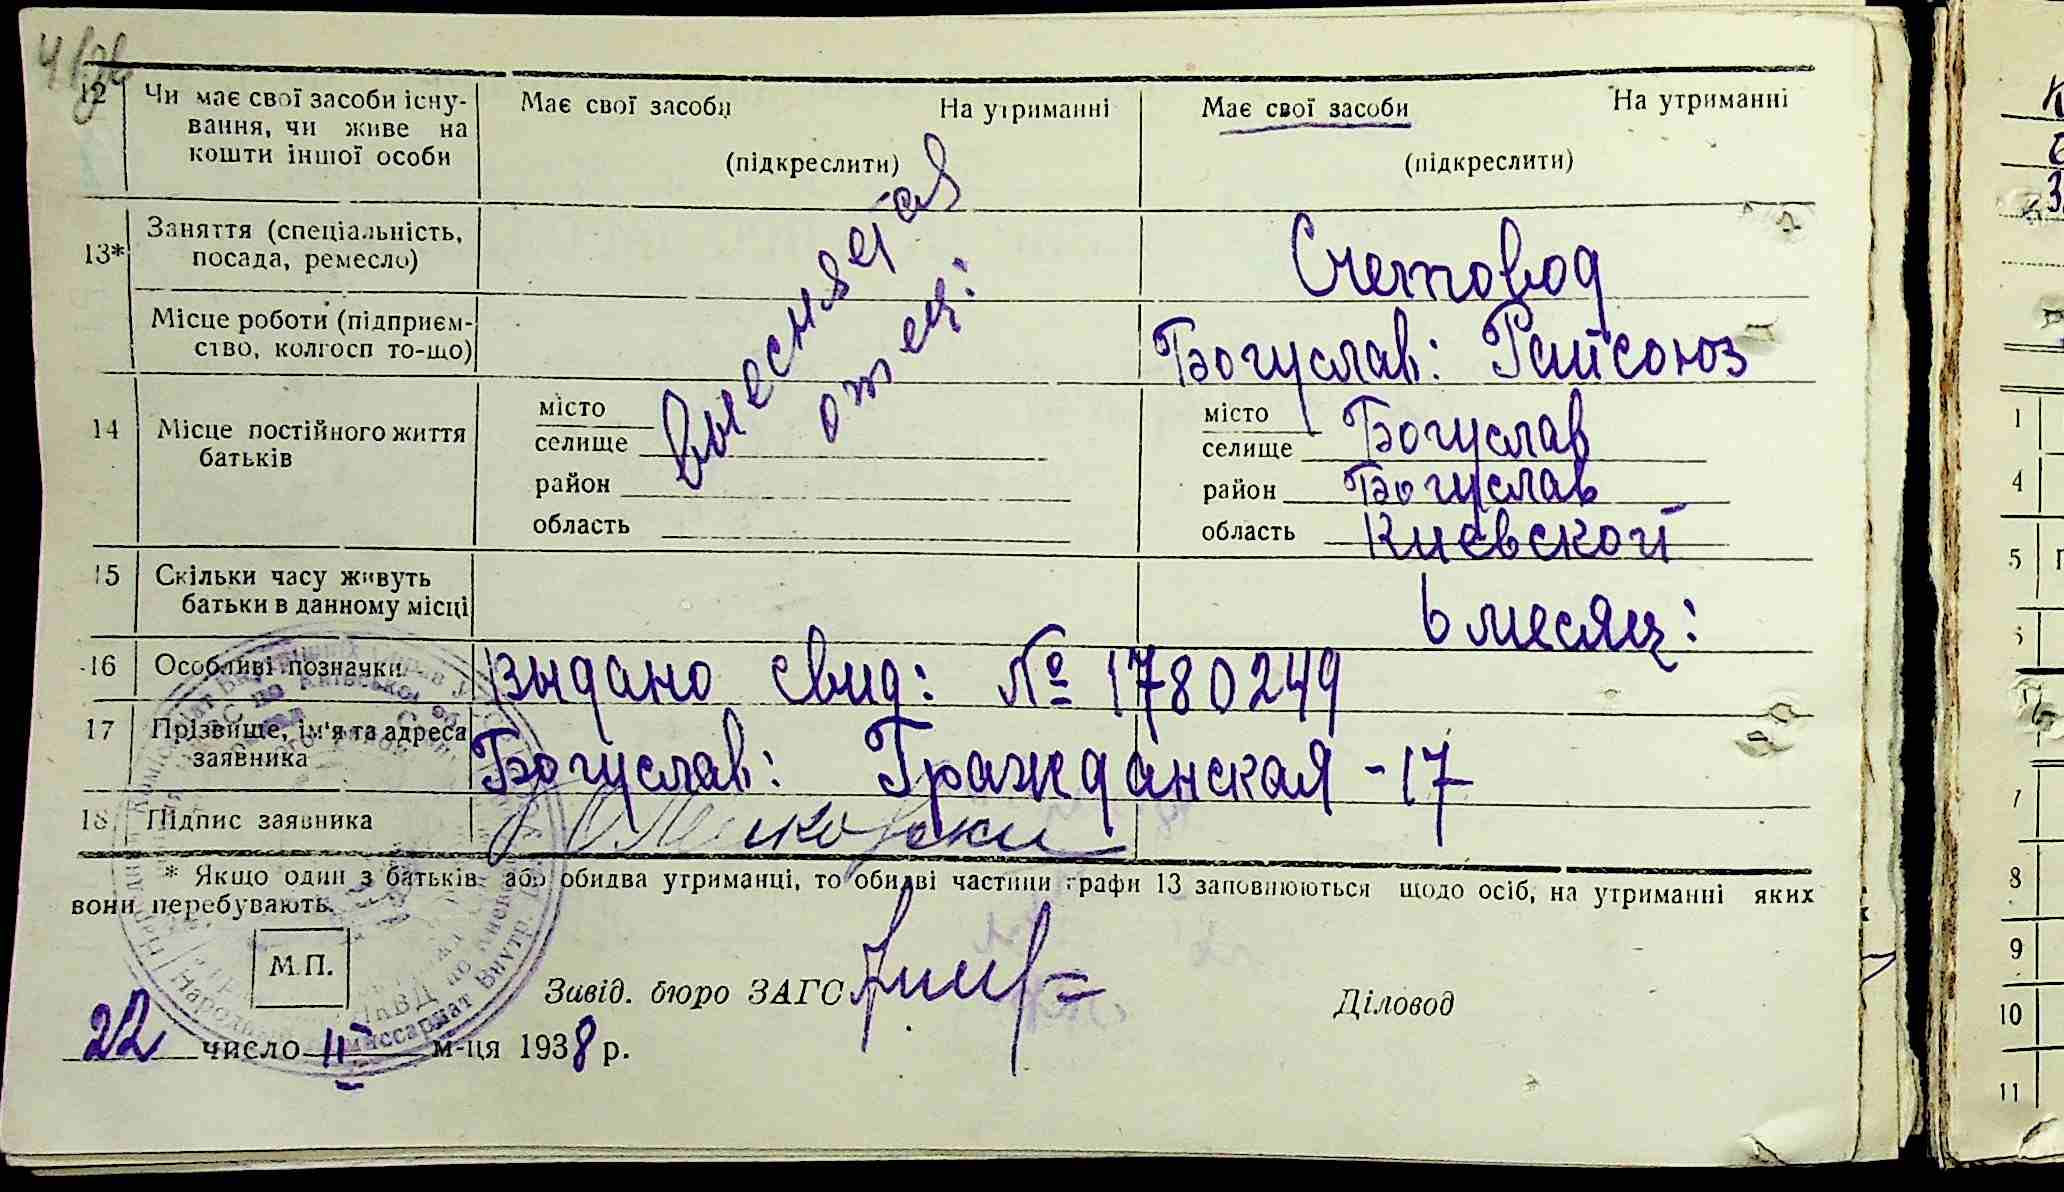 12 Чи має свої засоби існу-
вання, чи живе на
кошти іншої особи
Має свої засоби На утриманні
(підкреслити)
Має свої засоби На утриманні
(підкреслити)
13* Заняття (спеціальність,
посада, ремесло)
Счетовод
Місце роботи (підприєм-
ство, колгосп то-що)
Богуслав: Райсоюз
выесняется
отец:
14 Місце постійного життя
батьків
місто
селище
район
область
місто
селище Богуслав
район Богуслав
область Киевской
15 Скільки часу живуть
батьки в данному місці
6 месяц:
16 Особливі позначки
выдано свид: № 1780249
17 Прізвище, ім'я та адреса
заявника
Богуслав: Гражданская - 17
18 Підпис заявника
* Якщо один з батьків або обидва утриманці, то обидві частини графи 13 заповнюються щодо осіб, на утриманні яких
вони перебувають.
М.П.
Завід. бюро ЗАГС
Діловод
22 число II м-ця 1938 р.
1
4
5
7
8
9
10
11